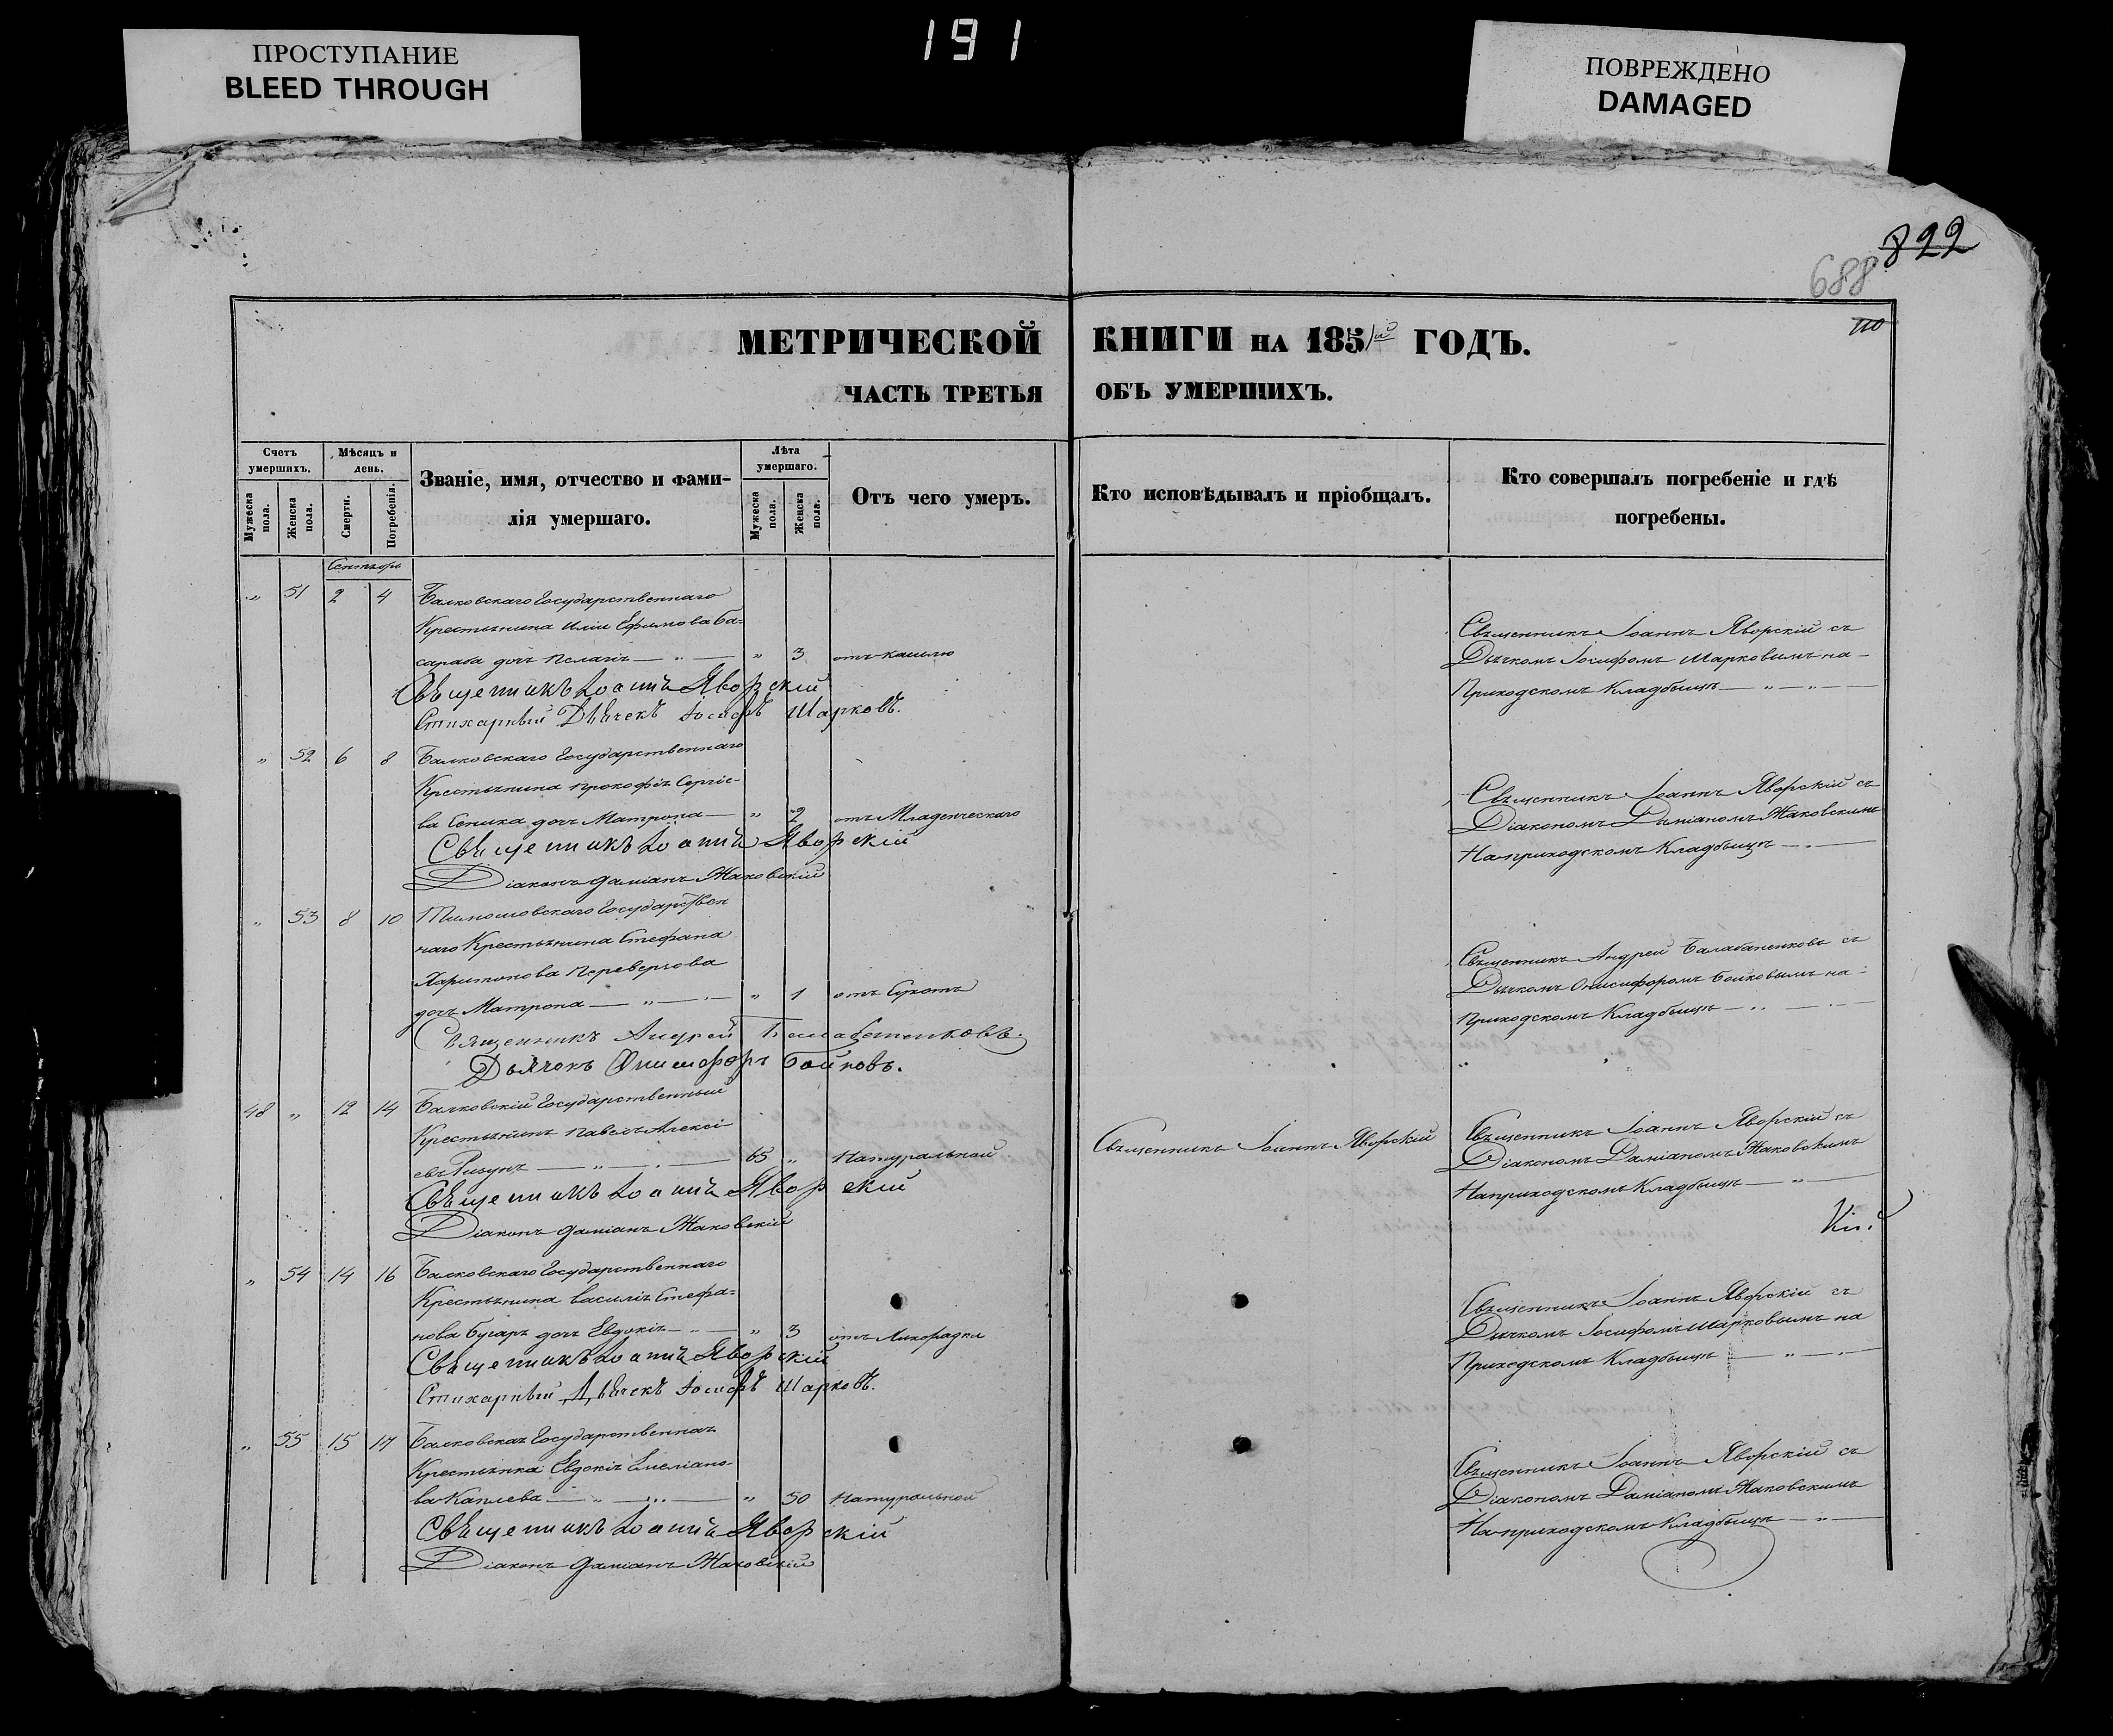 191
ПРОСТУПАНИЕ
BLEED THROUGH
ПОВРЕЖДЕНО
DAMAGED
822
688
110
МЕТРИЧЕСКОЙ КНИГИ НА 1851й ГОДЪ.
ЧАСТЬ ТРЕТЬЯ ОБЪ УМЕРШИХЪ.
Счетъ умершихъ.
Мужеска пола.
Женска пола.
Мѣсяцъ и день.
Смерти.
Погребенія.
Званіе, имя, отчество и фами-
лія умершаго.
Лѣта умершаго.
Мужеска пола.
Женска пола.
Отъ чего умеръ.
Кто исповѣдывалъ и пріобщалъ.
Кто совершалъ погребеніе и гдѣ
погребены.
Сентябрь
" 51 2 4 Балковскаго Государственнаго
Крестьянина Иліи Ефимова Ба-
сараба дочь Пелагія " 3 отъ кашлю
Священникъ Іоаннъ Яворскій
Стихарный Дьячекъ Іосифъ Шарковъ.
Священникъ Іоаннъ Яворскій съ
Дьячкомъ Іосифомъ Шарковымъ на
Приходскомъ Кладбищѣ
" 52 6 8 Балковскаго Государственнаго
Крестьянина Прокофія Сергіе-
ва Сеника дочь Матрона " 2 отъ Младенческаго
Священникъ Іоаннъ Яворскій
Діаконъ Даміанъ Жаковскій
Священникъ Іоаннъ Яворскій съ
Діакономъ Даміаномъ Жаковскимъ
На приходскомъ Кладбищѣ
" 53 8 10 Государствен
наго Крестьянина Стефана
Харитонова
дочь Матрона " 1 отъ Сухотъ
Священникъ Андрей Балабаненковъ.
Дьячокъ Онисифоръ Бойковъ.
Священникъ Андрей Балабаненковъ съ
Дьячкомъ Онисифоромъ Бойковымъ на
Приходскомъ Кладбищѣ
48 " 12 14 Балковскій Государственный
Крестьянинъ Павелъ Алексі-
евъ 65 " Натуральной
Священникъ Іоаннъ Яворскій
Діаконъ Даміанъ Жаковскій
Священникъ Іоаннъ Яворскій
Священникъ Іоаннъ Яворскій съ
Діакономъ Даміаномъ Жаковскимъ
На приходскомъ Кладбищѣ
" 54 14 16 Балковскаго Государственнаго
Крестьянина Василія Стефа-
нова дочь Евдокія " 3 отъ Лихорадки
Священникъ Іоаннъ Яворскій
Стихарный Дьячекъ Іосифъ Шарковъ.
Священникъ Іоаннъ Яворскій съ
Дьячкомъ Іосифомъ Шарковымъ на
Приходскомъ Кладбищѣ
" 55 15 17 Балковская Государственная
Крестьянка Евдокія Емеліано-
ва Каплева " 50 Натуральной
Священникъ Іоаннъ Яворскій
Діаконъ Даміанъ Жаковскій
Священникъ Іоаннъ Яворскій съ
Діакономъ Даміаномъ Жаковскимъ
На приходскомъ Кладбищѣ